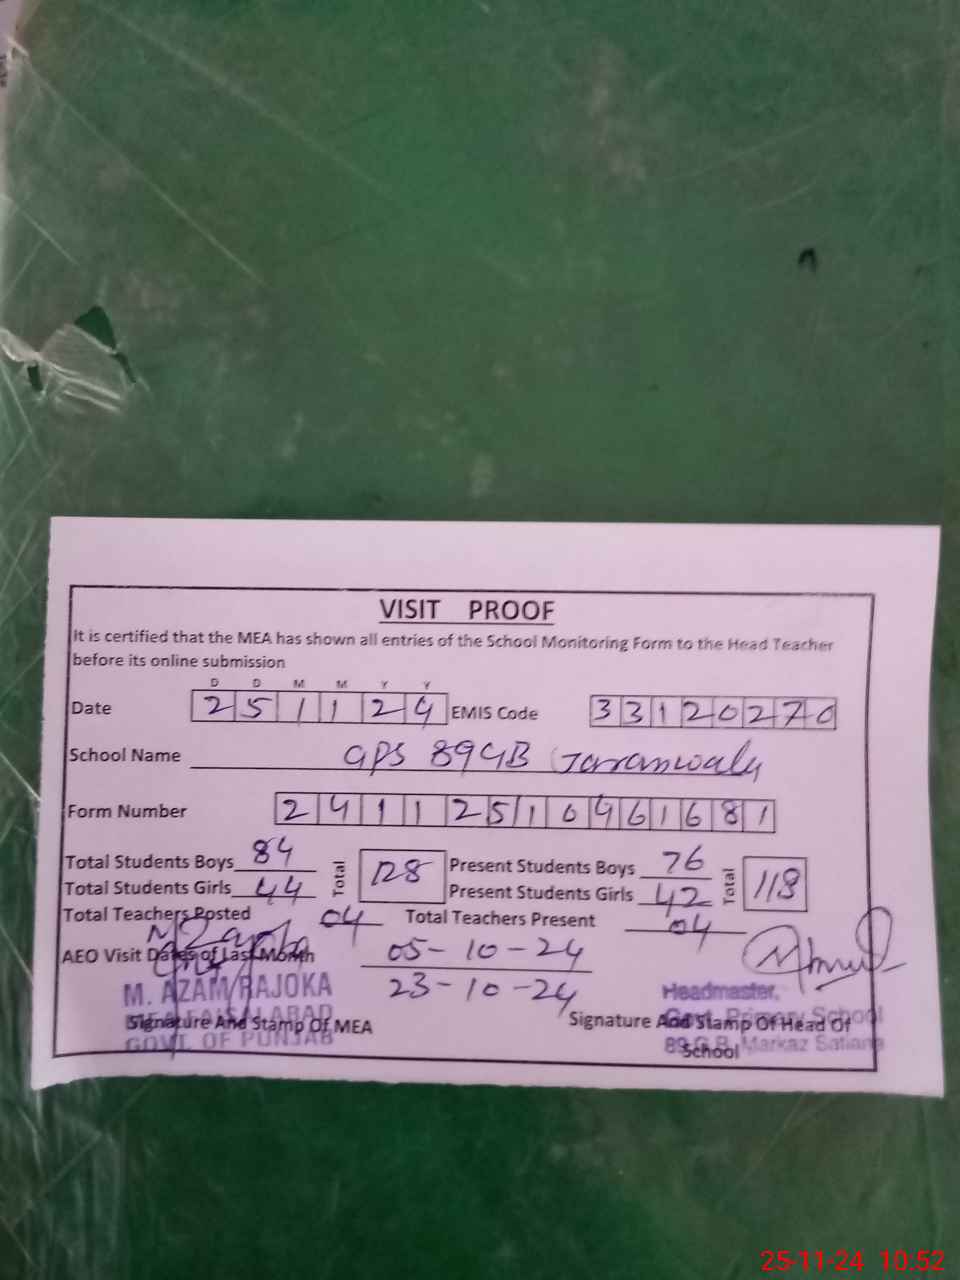 VISIT PROOF
It is certified that the MEA has shown all entries of the School Monitoring Form to the Head Teacher
before its online submission
D D M M Y Y
Date 2 5 1 1 2 4 EMIS Code 3 3 1 2 0 2 7 0
School Name GPS 89GB Jaranwala
Form Number 2 4 1 1 2 5 1 0 4 6 1 6 8 1
Total Students Boys 84 Total 128 Present Students Boys 76 Total 118
Total Students Girls 44 Present Students Girls 42
Total Teachers Posted 04 Total Teachers Present 04
AEO Visit Dates of Last Month 05-10-24
23-10-24
M. AZAM RAJOKA
MEA FAISALABAD
GOVT. OF PUNJAB
Signature And Stamp Of MEA
Headmaster,
Govt. Primary School
89 G.B. Markaz Satiana
Signature And Stamp Of Head Of
School
25-11-24 10:52